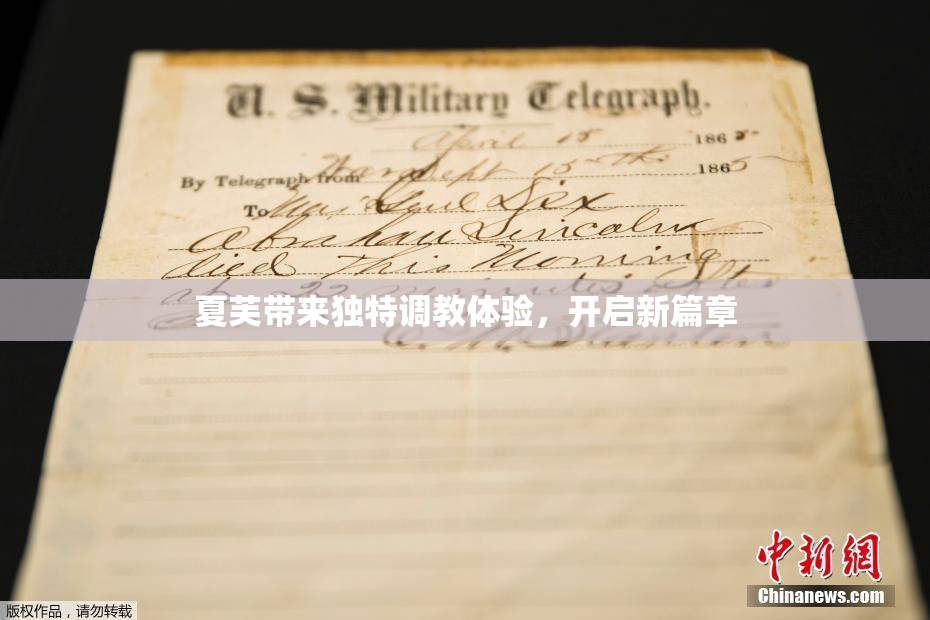 U. S. Military Telegraph.
April 15 1865
By Telegraph from War Dept 15th 1865
To Maj Genl Dix
Abraham Lincoln
died This Morning
at 22 minutes after
夏芙带来独特调教体验，开启新篇章
版权作品，请勿转载
中新网
Chinanews.com